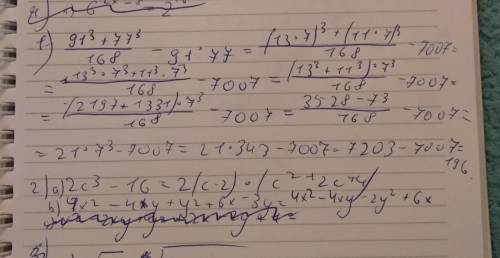 1.) (91³ + 77³)/168 − 91 · 77 = ((13 · 7)³ + (11 · 7)³)/168 − 7007 =
= (13³ · 7³ + 11³ · 7³)/168 − 7007 = ((13³ + 11³) · 7³)/168 − 7007 =
= ((2197 + 1331) · 7³)/168 − 7007 = (3528 − 7³)/168 − 7007 =
= 21 · 7³ − 7007 = 21 · 343 − 7007 = 7203 − 7007 = 196
2) a) 2c³ − 16 = 2(c · 2) · (c² + 2c + 4)
b) 4x² − 4xy + y² + 6x − 3y = 4x² − 4xy − 2y² + 6x